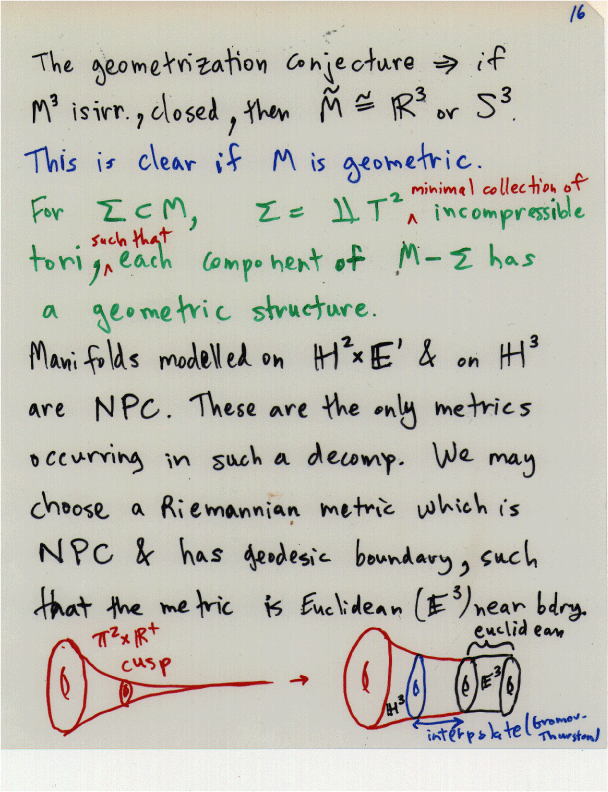 16
The geometrization conjecture ⇒ if
M³ is irr., closed, then M̃ ≅ ℝ³ or S³.
This is clear if M is geometric.
minimal collection of
For Σ ⊂ M, Σ = ⨿ T² ^ incompressible
such that
tori, ^ each component of M − Σ has
a geometric structure.
Manifolds modelled on ℍ² × 𝔼¹ & on ℍ³
are NPC. These are the only metrics
occurring in such a decomp. We may
choose a Riemannian metric which is
NPC & has geodesic boundary, such
that the metric is Euclidean (𝔼³) near bdry.
π² × ℝ⁺
cusp
euclidean
→
ℍ³
𝔼³
interpolate (Gromov-
Thurston)